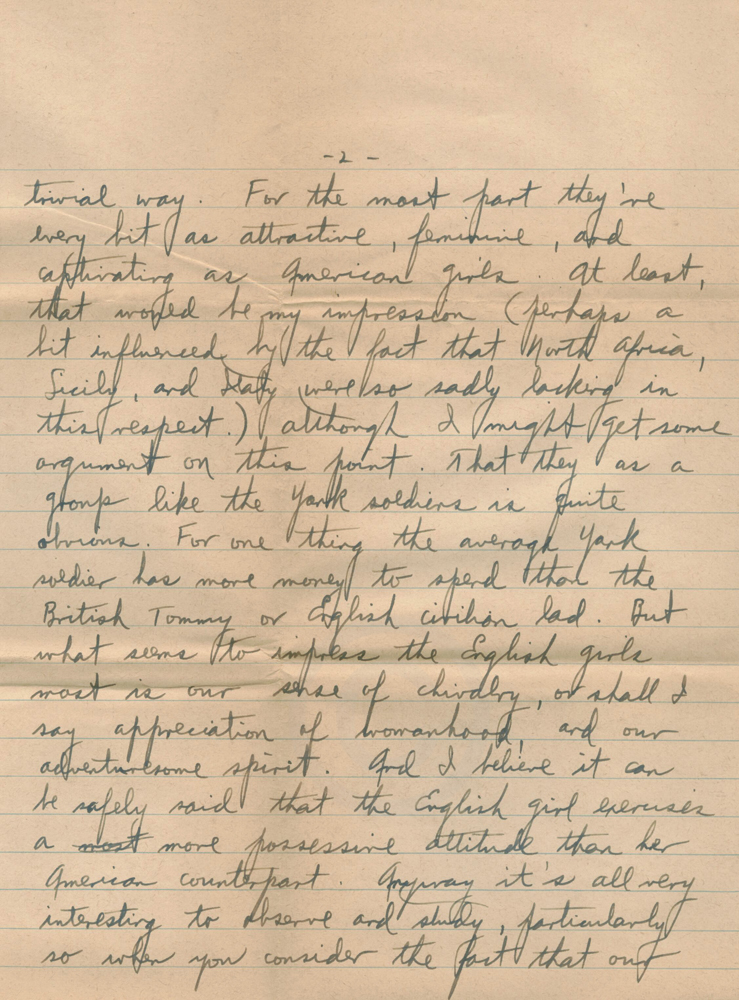 -2-
trivial way. For the most part they've
every bit as attractive, feminine, and
captivating as American girls. At least,
that would be my impression (perhaps a
bit influenced by the fact that North Africa,
Sicily, and Italy were so sadly lacking in
this respect.) although I might get some
argument on this point. That they as a
group like the Yank soldiers is quite
obvious. For one thing the average Yank
soldier has more money to spend than the
British Tommy or English civilian lad. But
what seems to impress the English girls
most is our sense of chivalry, or shall I
say appreciation of womanhood, and our
adventuresome spirit. And I believe it can
be safely said that the English girl exercises
a most more possessive attitude than her
American counterpart. Anyway it's all very
interesting to observe and study, particularly
so when you consider the fact that our